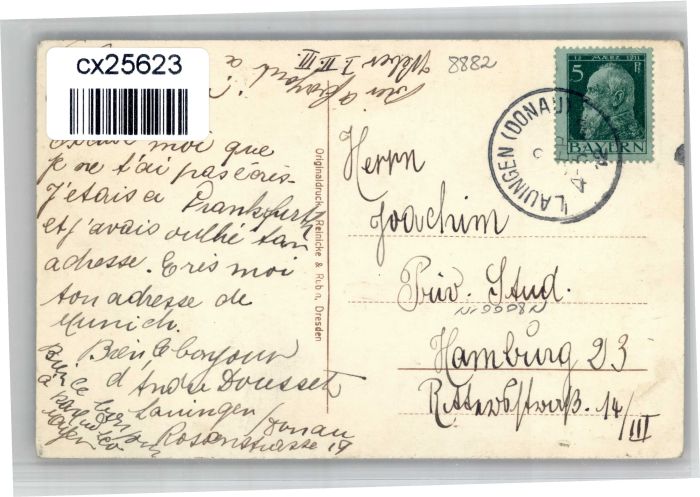 cx25623
8882
Bien le bonjour à
Weber I. II. III.
moi que
je ne t'ai pas écris.
J'etais a Frankfurth
et j'avais oulhé tan
adresse. Ecris moi
ton adresse de
Munich.
Bien le bonjour
d'Andre Dousset
Lauingen
/Donau
Rosenstrasse 19
Bien le
Originaldruck, Reinicke & Rubin, Dresden
12. MÄRZ 1911
5 Pf.
BAYERN
LAUINGEN (DONAU)
Herrn
Joachim
Priv. Stud.
Nr. 9998 N
Hamburg 23
Ritterstraß. 14/III